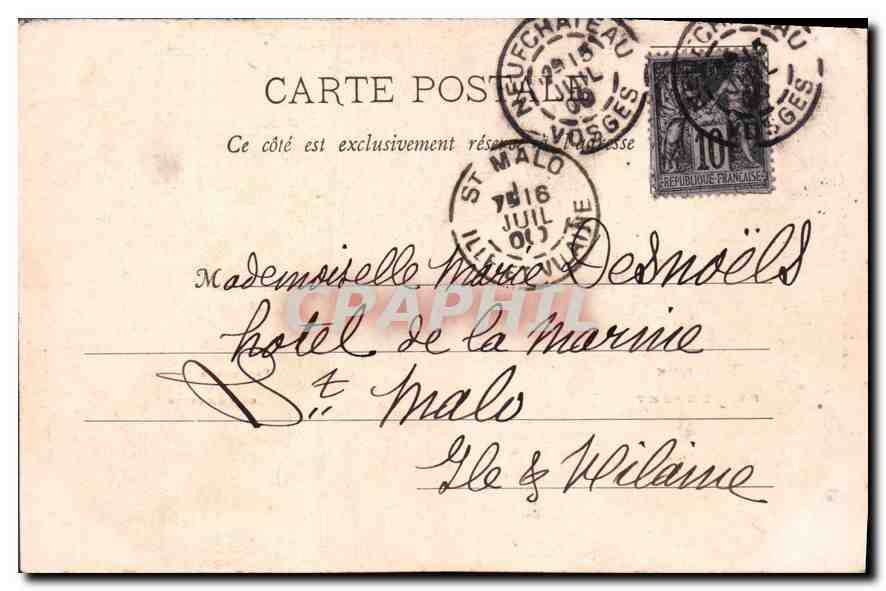 NEUFCHATEAU
15
JUIL
00
VOSGES
CARTE POSTALE
Ce côté est exclusivement réservé à l'adresse
10
REPUBLIQUE FRANÇAISE
ST MALO
16
JUIL
00
ILLE ET VILAINE
Mademoiselle Marie Desnoëls
CRAPHIL
hotel de la Marine
St Malo
Ile & Vilaine